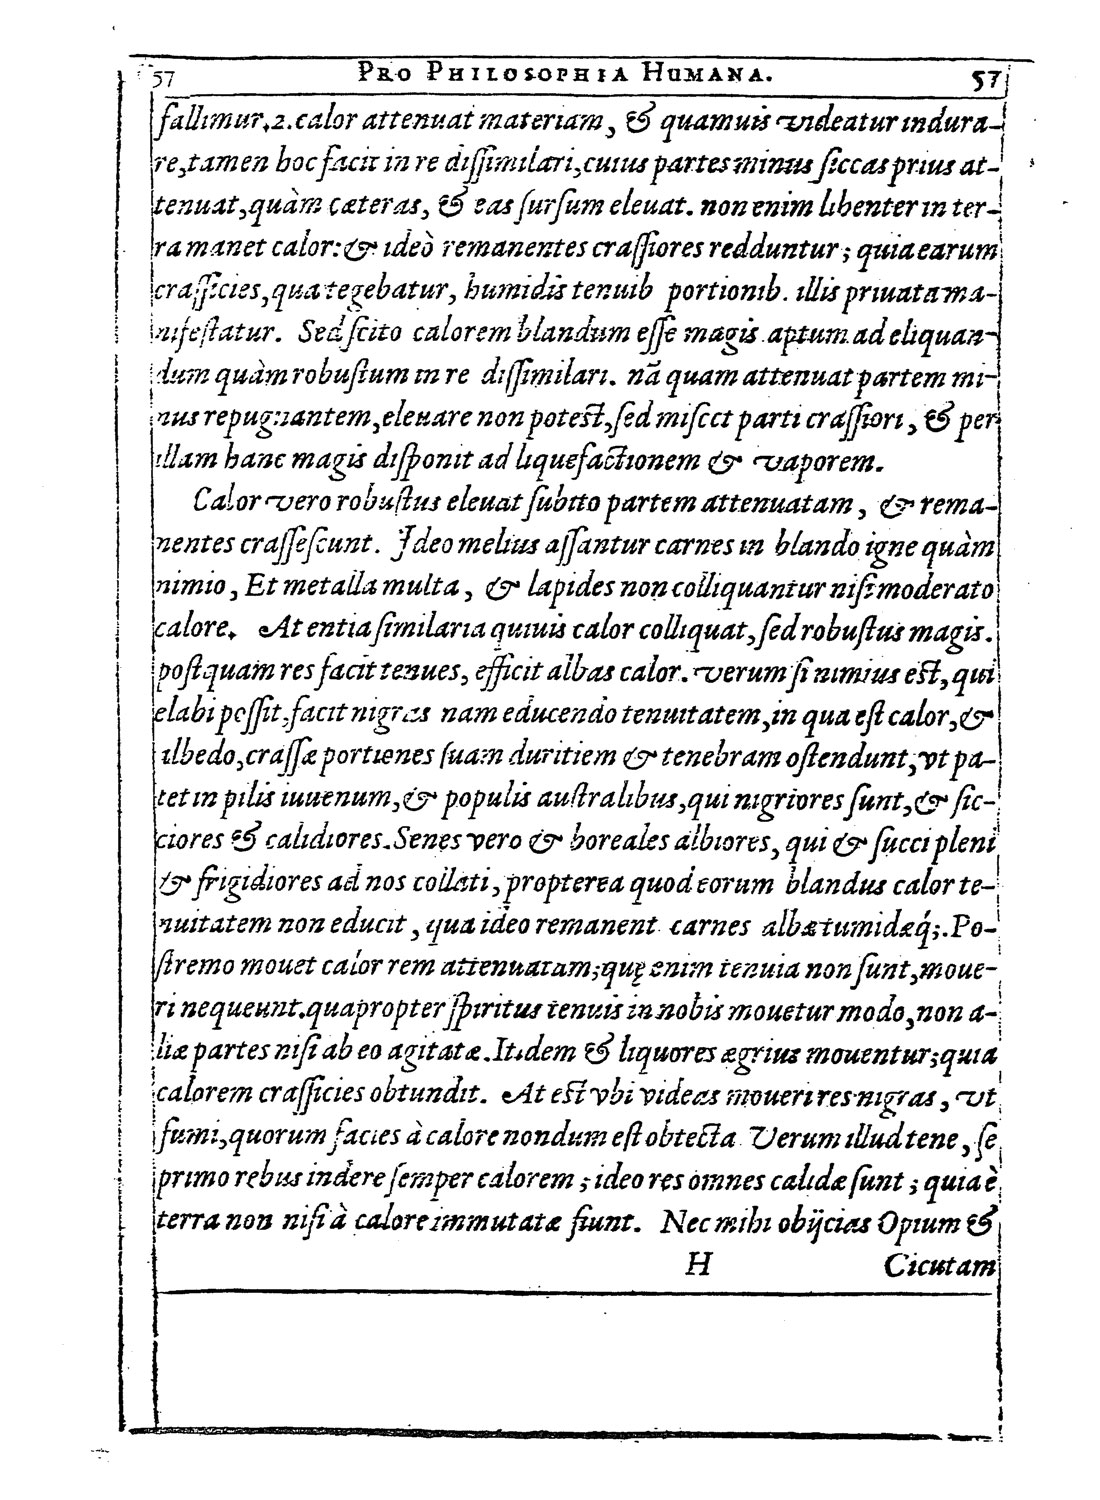 57 PRO PHILOSOPHIA HUMANA. 57
fallimur. 2. calor attenuat materiam, & quamuis videatur indura-
re, tamen hoc facit in re dissimilari, cuius partes minus siccas prius at-
tenuat, quàm cæteras, & eas sursum eleuat. non enim libenter in ter-
ra manet calor: & ideò remanentes crassiores redduntur; quia earum
crassicies, qua tegebatur, humidis tenuib portionib. illis priuata ma-
nifestatur. Sed scito calorem blandum esse magis aptum ad eliquan-
dum quàm robustum in re dissimilari. nã quam attenuat partem mi-
nus repugnantem, eleuare non potest, sed miscet parti crassiori, & per
illam hanc magis disponit ad liquefactionem & vaporem.
Calor vero robustus eleuat subito partem attenuatam, & rema-
nentes crassescunt. Ideo melius assantur carnes in blando igne quàm
nimio, Et metalla multa, & lapides non colliquantur nisi moderato
calore. At entia similaria quiuis calor colliquat, sed robustus magis.
postquam res facit tenues, efficit albas calor. verum si nimius est, qui
elabi possit, facit nigras nam educendo tenuitatem, in qua est calor, &
albedo, crassæ portiones suam duritiem & tenebram ostendunt, vt pa-
tet in pilis iuuenum, & populis australibus, qui nigriores sunt, & sic-
ciores & calidiores. Senes vero & boreales albiores, qui & succi pleni
& frigidiores ad nos collati, propterea quod eorum blandus calor te-
nuitatem non educit, qua ideo remanent carnes albæ tumidæq́;. Po-
stremo mouet calor rem attenuatam; quę enim tenuia non sunt, moue-
ri nequeunt. quapropter spiritus tenuis in nobis mouetur modo, non a-
liæ partes nisi ab eo agitatæ. Itidem & liquores ægrius mouentur; quia
calorem crassicies obtundit. At est vbi videas moueri res nigras, vt
fumi, quorum facies à calore nondum est obtecta Verum illud tene, se
primo rebus indere semper calorem; ideo res omnes calidæ sunt; quia è
terra non nisi à calore immutatæ fiunt. Nec mihi obijcias Opium &
H Cicutam